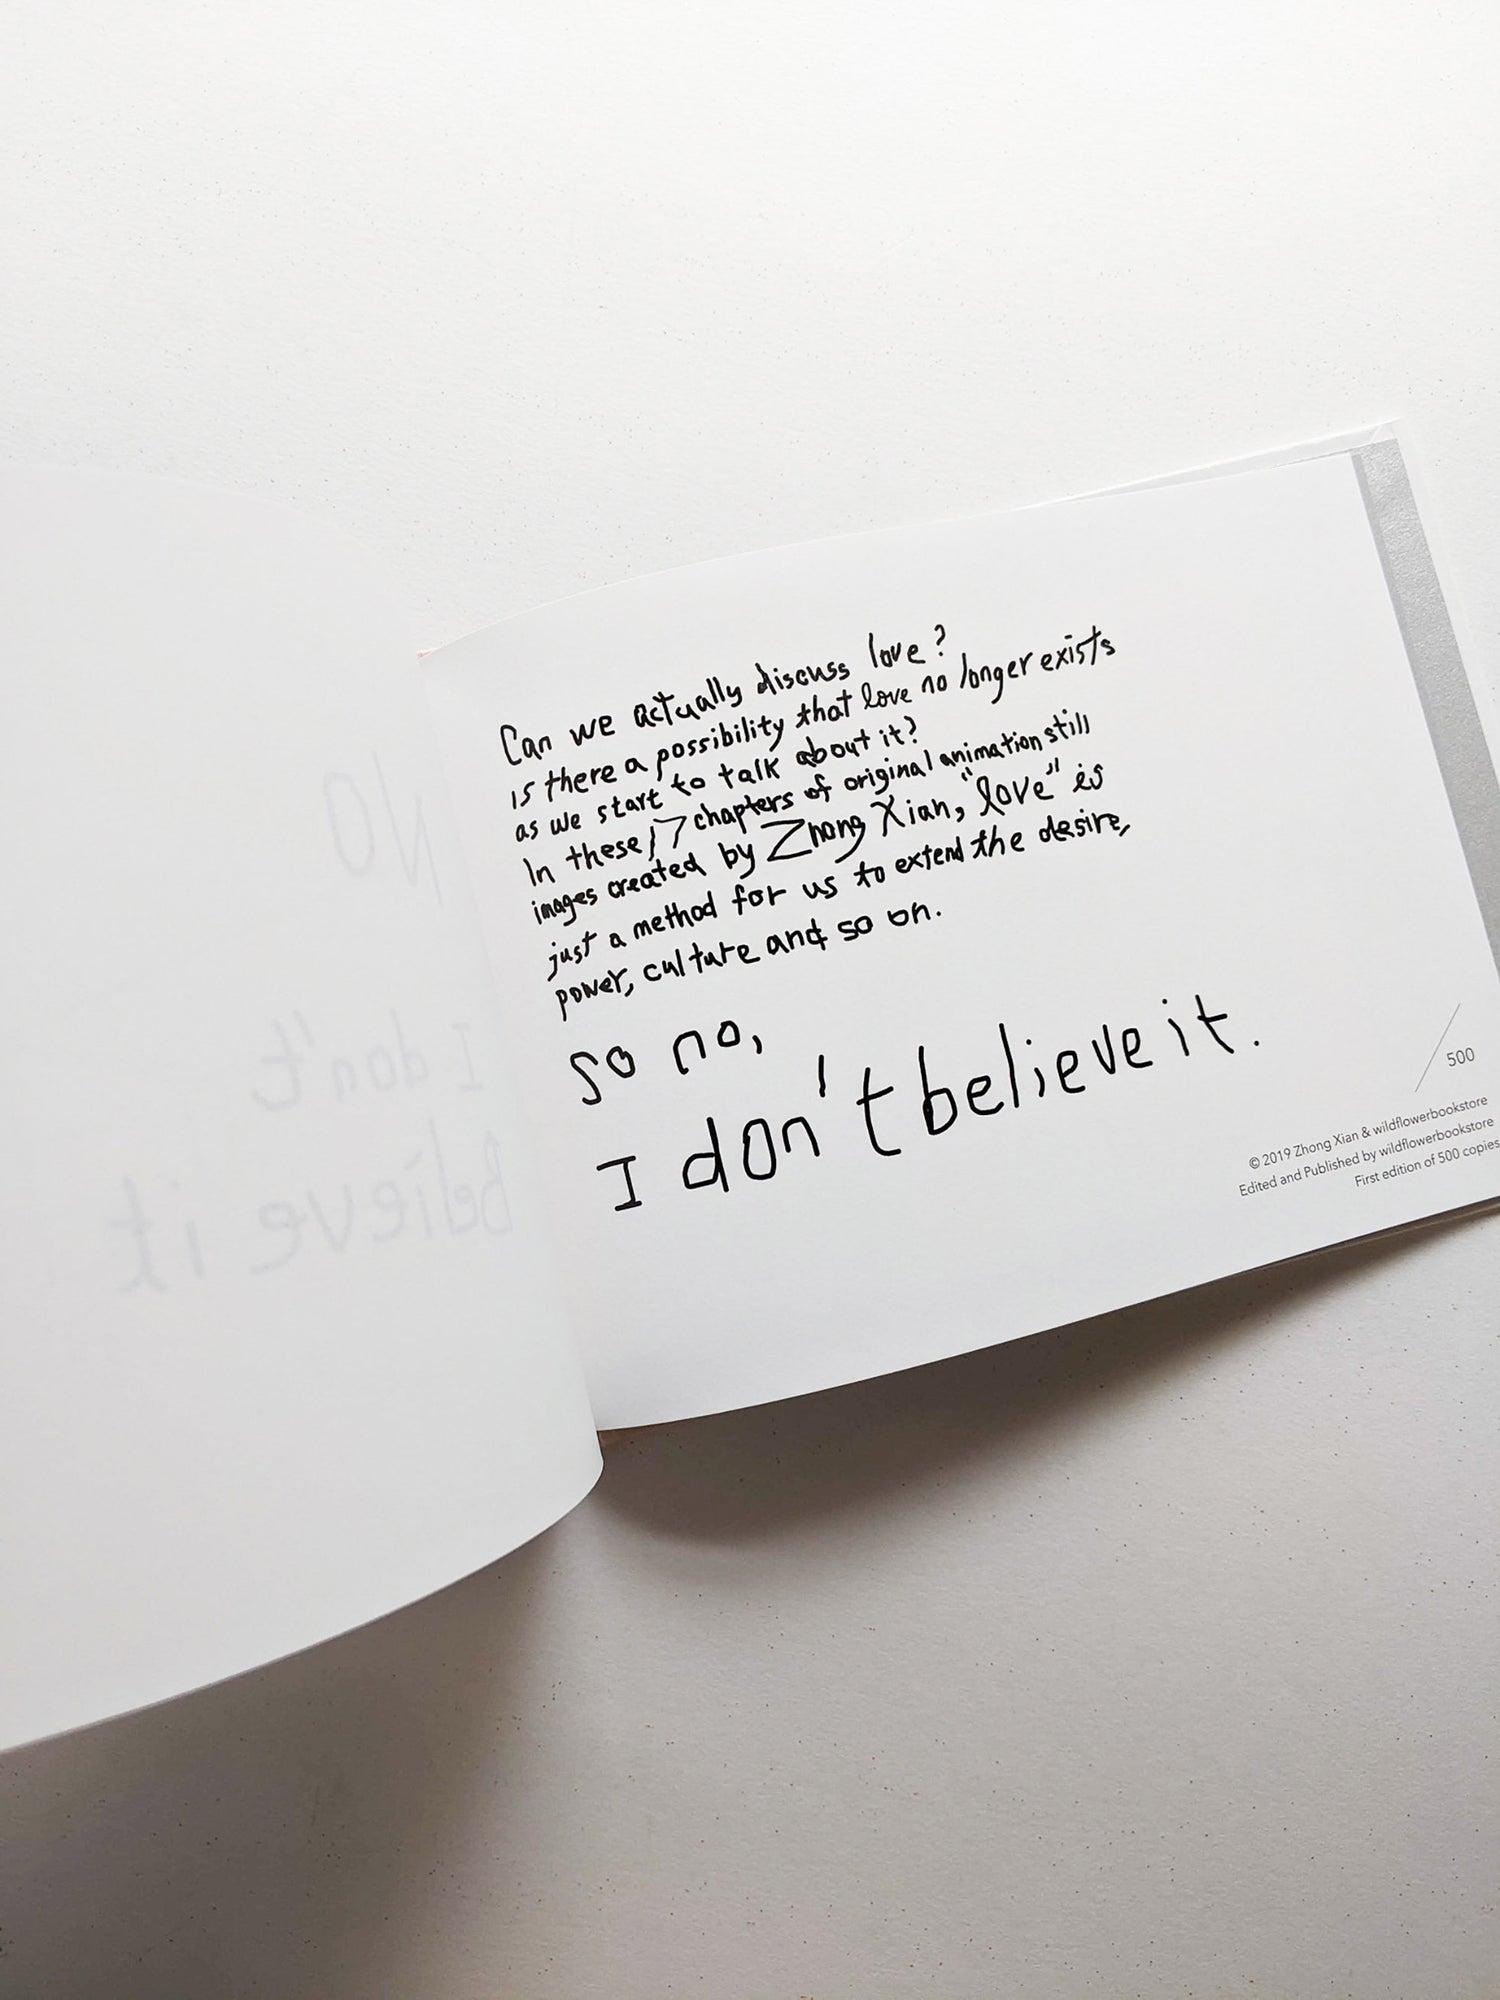 NO
I don't
believe it
Can we actually discuss love?
is there a possibility that love no longer exists
as we start to talk about it?
In these 17 chapters of original animation still
images created by Zhong Xian, "love" is
just a method for us to extend the desire,
power, culture and so on.
so no,
I don't believe it.
/500
© 2019 Zhong Xian & wildflowerbookstore
Edited and Published by wildflowerbookstore
First edition of 500 copies